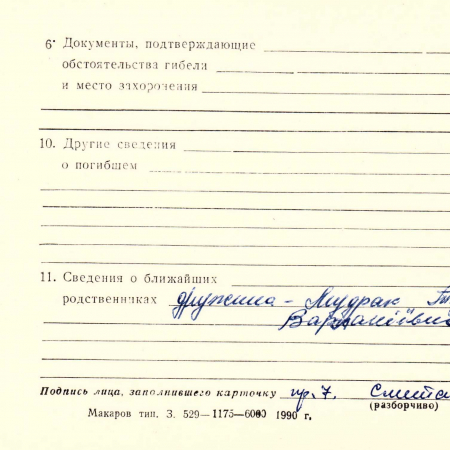 6· Документы, подтверждающие
обстоятельства гибели
и место захоронения
10. Другие сведения
о погибшем
11. Сведения о ближайших
родственниках дружина - Мудрак
Подпись лица, заполнившего карточку пр. 7.
(разборчиво)
Макаров тип. З. 529—1175—6000 1990 г.